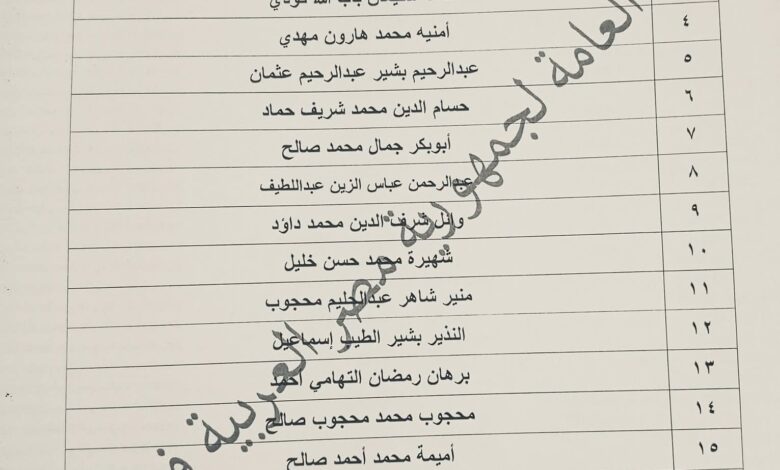 ٤ أمنيه محمد هارون مهدي
٥ عبدالرحيم بشير عبدالرحيم عثمان
٦ حسام الدين محمد شريف حماد
٧ أبوبكر جمال محمد صالح
٨ عبدالرحمن عباس الزين عبداللطيف
٩ وائل شرف الدين محمد داؤد
١٠ شهيرة محمد حسن خليل
١١ منير شاهر عبدالحليم محجوب
١٢ النذير بشير الطيب إسماعيل
١٣ برهان رمضان التهامي أحمد
١٤ محجوب محمد محجوب صالح
١٥ أميمة محمد أحمد صالح
العامة لجمهورية مصر العربية